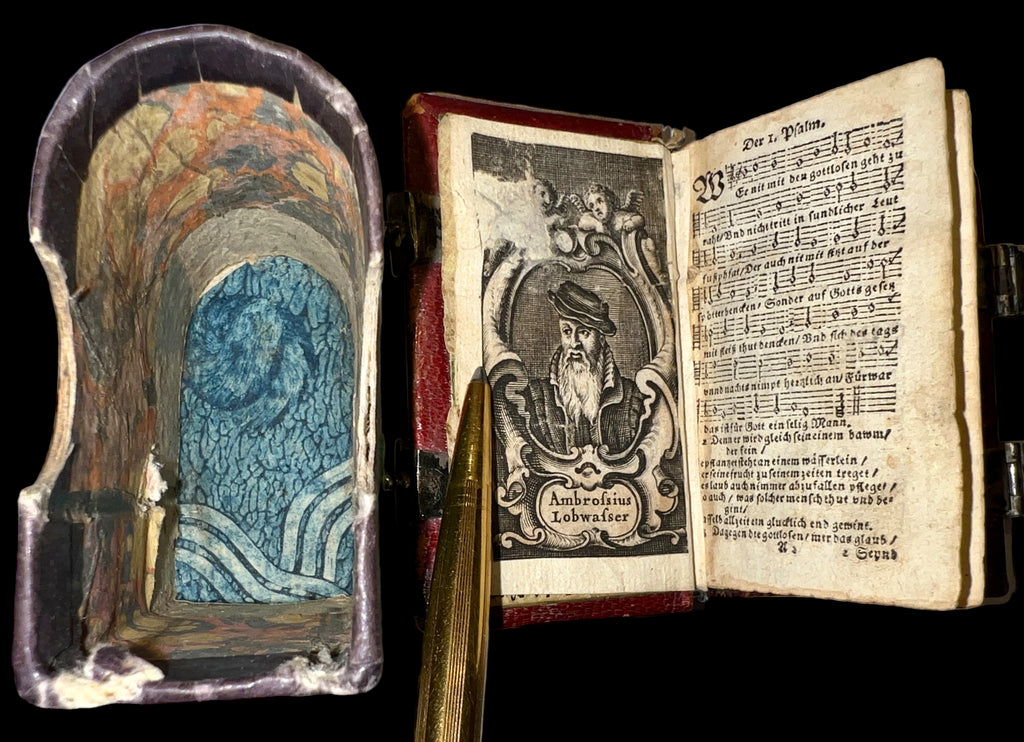 Ambrosius
Lobwasser
Der 1. Psalm.
WEr nit mit den gottlosen geht zu
raht/ Vnd nicht tritt in sundlicher Leut
fußpfat/ Der auch nit mit sitzt auf der
spötter bencken/ Sonder auf Gotts gesetz
mit fleiß thut dencken/ Vnd sich des tags
vnnd nachts nimpt hertzlich an/ Fürwar
das ist für Gott ein selig Mann.
2 Denn er wird gleich sein einem bawm/
der fein/
gepflantzet steht an einem wässerlein/
er seine frucht zu seinem zeiten treget/
laub auch nimmer abzufallen pfleget/
auch/ was solcher mensch thut vnd be-
gint/
allzeit ein glucklich end gewint.
Dagegen die gottlosen/ wer das glaub/
A 2 2 Seynd